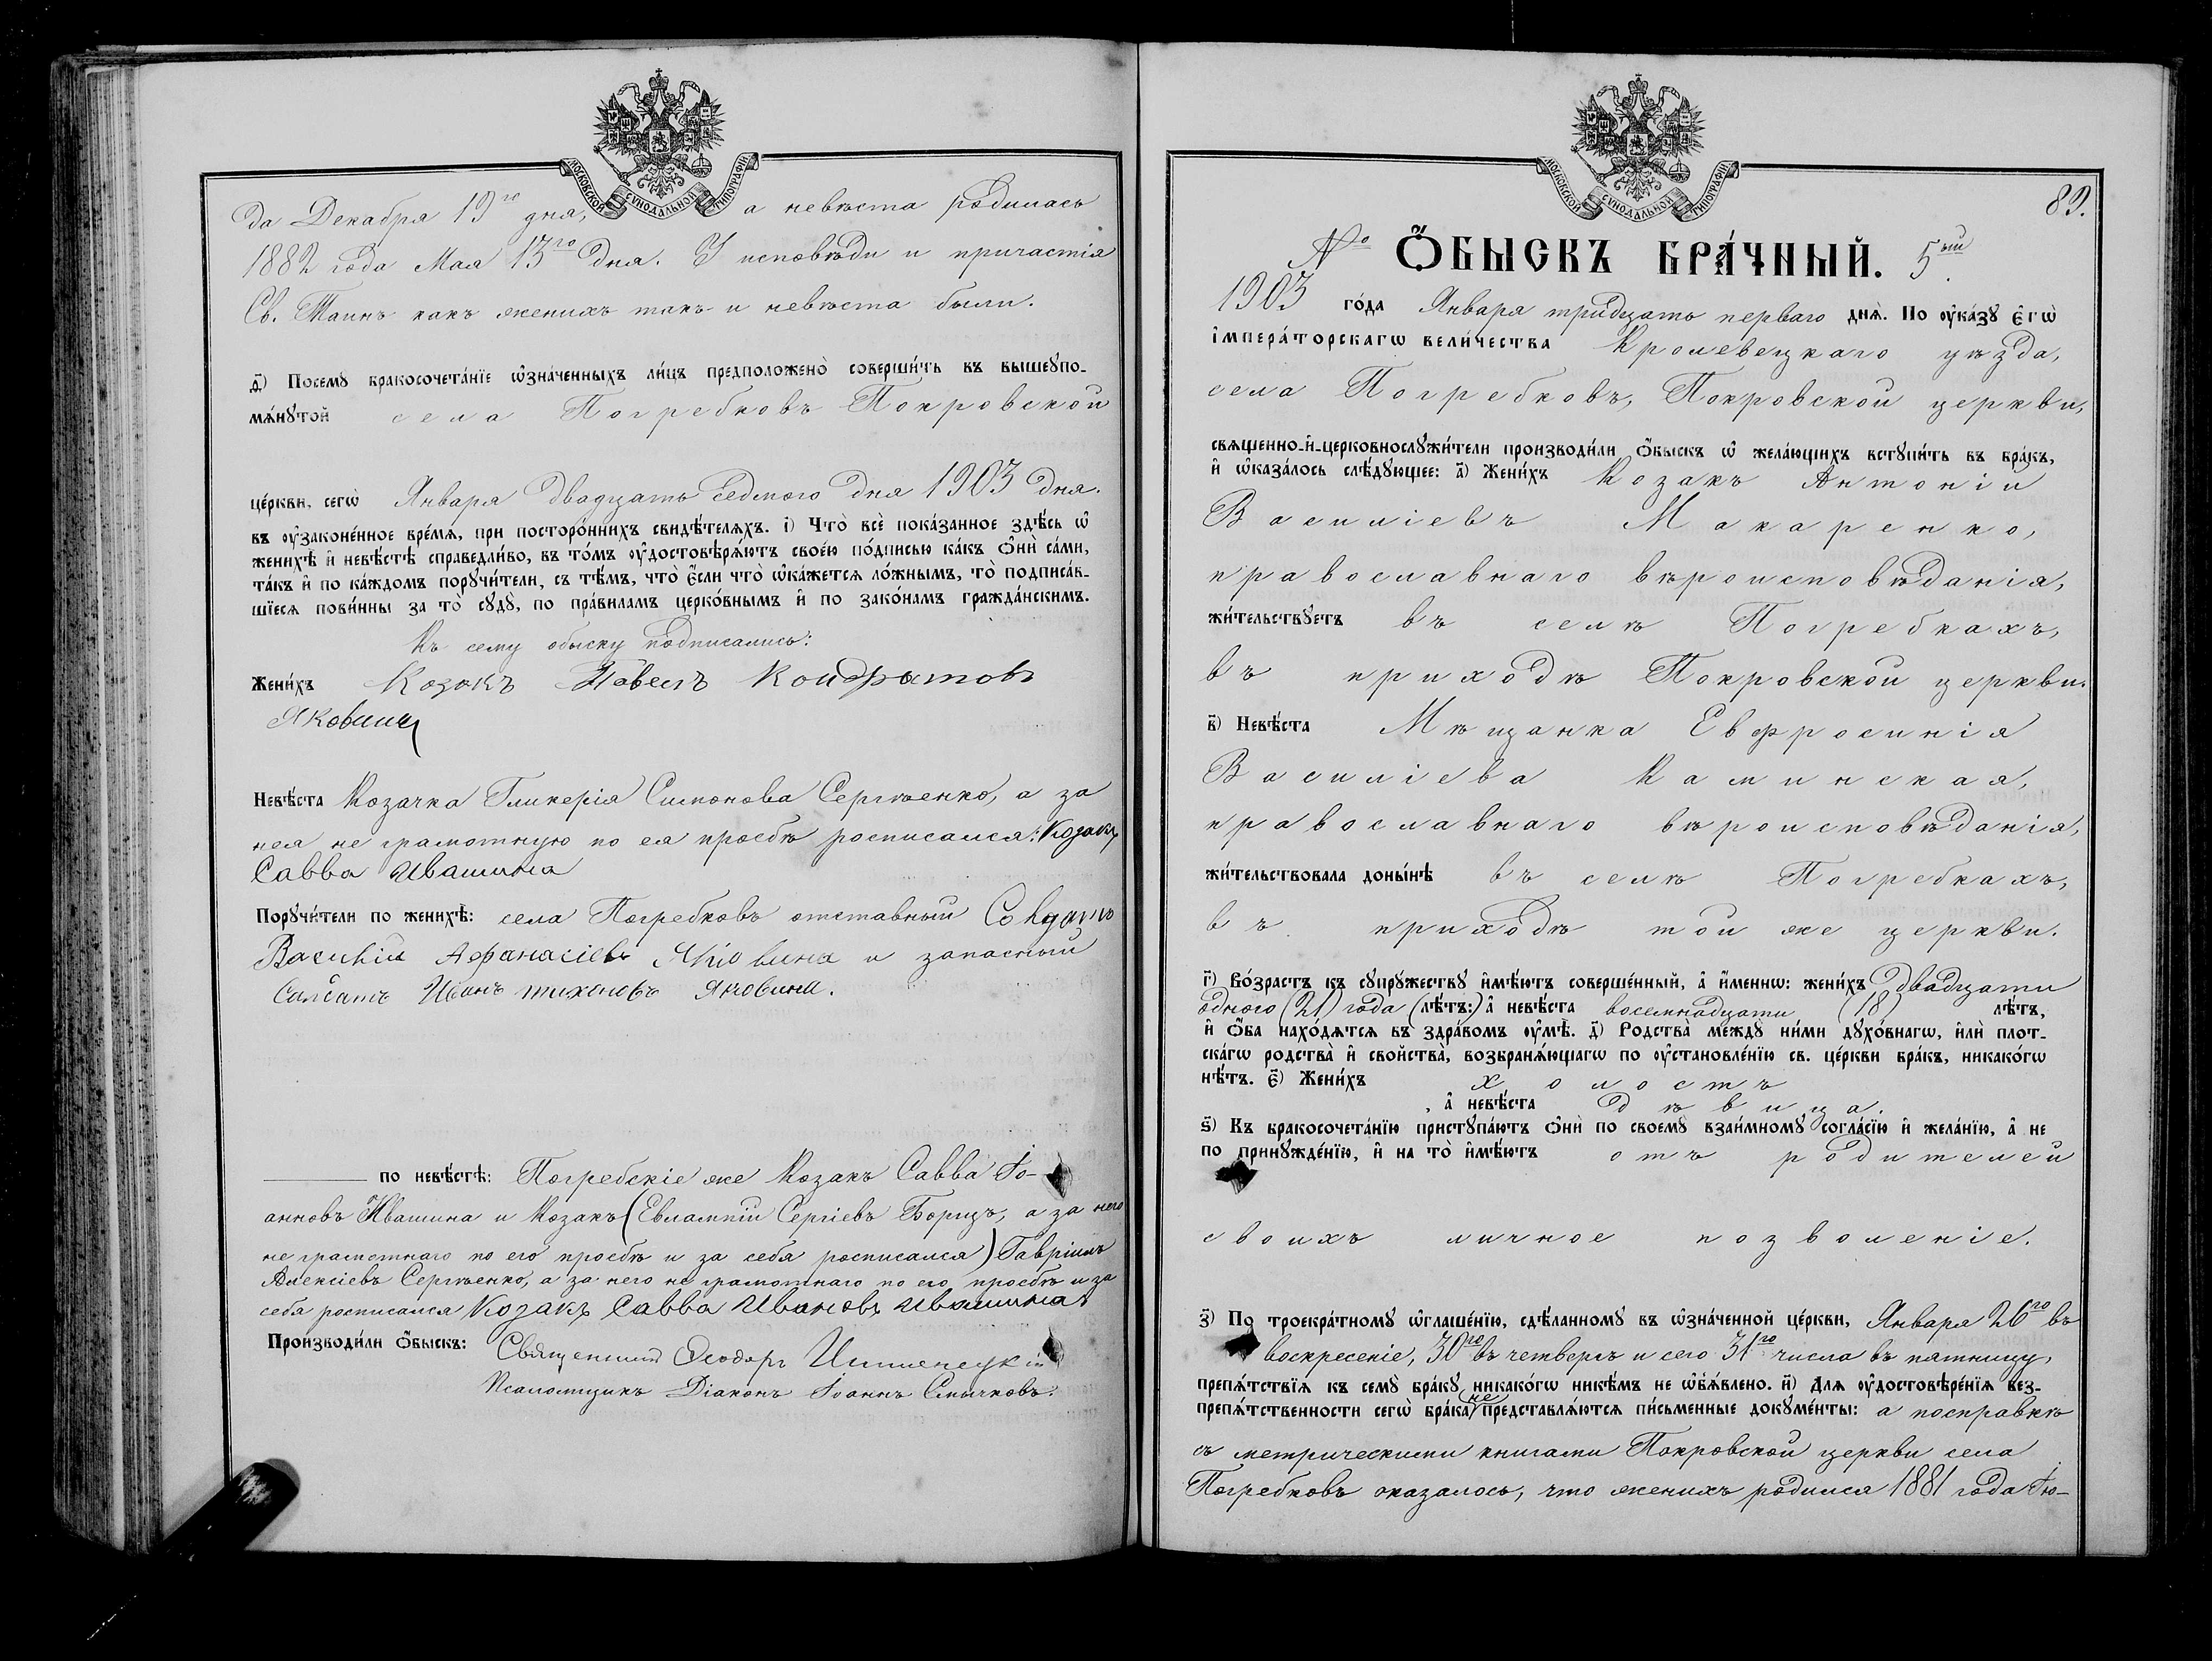 МОСКОВСКОЙ СѴНОДАЛЬНОЙ ТИПОГРАФІИ
да Декабря 19го дня, а невѣста родилась
1882 года Мая 13го дня. У исповѣди и причастія
Св. Таинъ какъ женихъ такъ и невѣста были.
д҃) Посемꙋ бракосочета́нїе ѡ҆зна́ченныхъ ли́цъ предположено̀ соверши́ть въ вышеꙋпо-
мѧ́нꙋтой села Погребковъ Покровской
це́ркви, сегѡ̀ Января двадцать седмого дня 1903 дня.
въ ᲂу҆законе́нное вре́мѧ, при посторо́ннихъ свидѣ́телѧхъ. і҃) Что̀ всѐ пока́занное здѣ́сь ѡ҆
женихѣ̀ и҆ невѣ́стѣ справедли́во, въ то́мъ ᲂу҆достовѣрѧ́ютъ свое́ю по́дписью ка́къ ѻ҆нѝ са́ми,
та́къ и҆ по ка́ждомъ порꙋчи́тели, съ тѣ́мъ, что̀ є҆́сли что̀ ѡ҆ка́жетсѧ ло́жнымъ, то̀ подписа́в-
шїесѧ пови́нны за то̀ сꙋдꙋ̀, по пра́виламъ церко́внымъ и҆ по зако́намъ гражда́нскимъ.
Къ сему обыску подписались:
Жени́хъ Козакъ Павелъ Кондратовъ
Яковина
Невѣ́ста Козачка Гликерія Симонова Сергѣенко, а за
нея не грамотную по ея просбѣ росписался: Козакъ
Савва Ивашина
Порꙋчи́тели по женихѣ̀: села Погребковъ отставный Солдатъ
Василій Афанасіевъ Яковина и запасный
Салдатъ Иванъ тихоновъ Яковина.
по невѣ́стѣ: Погребскіе же Козакъ Савва Іо-
анновъ Ивашина и Козакъ (Евлампій Сергіевъ Борцъ, а за него
не грамотнаго по его просбѣ и за себя росписался) Гавріилъ
Алексіевъ Сергѣенко, а за него не грамотнаго по его просбѣ и за
себя росписался Козакъ Савва Ивановъ Ивашина
Производи́ли ѻ҆́быскъ: Священникъ Ѳеодоръ
Псаломщикъ Діаконъ Іоаннъ Смычковъ.
МОСКОВСКОЙ СѴНОДАЛЬНОЙ ТИПОГРАФІИ
89.
№ Ѻ҆́БЫСКЪ БРА́ЧНЫЙ. 5ый
1903 го́да Января тридцать перваго днѧ̀. По ᲂу҆ка́зꙋ є҆гѡ̀
і҆мпера́торскагѡ вели́чества Кролевецкаго уѣзда,
села Погребковъ, Покровской церкви,
свѧщенно-и҆-церковнослꙋжи́тели производи́ли ѻ҆́быскъ ѡ҆ жела́ющихъ встꙋпи́ть въ бра́къ,
и҆ ѡ҆каза́лось слѣ́дꙋющее: а҃) Жени́хъ Козакъ Антоній
Василіевъ Макаренко,
православнаго вѣроисповѣданія,
жи́тельствꙋетъ въ селѣ Погребкахъ,
въ приходѣ Покровской церкви.
в҃) Невѣ́ста Мѣщанка Евфросинія
Василіева Каминская,
православнаго вѣроисповѣданія,
жи́тельствовала доны́нѣ въ селѣ Погребкахъ,
въ приходѣ той же церкви.
г҃) Во́зрастъ къ сꙋпрꙋ́жествꙋ и҆мѣ́ютъ соверше́нный, а҆ и҆́меннѡ: жени́хъ двадцати
одного (21) года (лѣ́тъ:) а҆ невѣ́ста восемнадцати (18) лѣ́тъ,
и҆ ѻ҆́ба нахо́дѧтсѧ въ здра́вомъ ᲂу҆мѣ̀. д҃) Родства̀ междꙋ̀ ни́ми дꙋхо́внагѡ, и҆лѝ плот-
ска́гѡ родства̀ и҆ сво́йства, возбранѧ́ющагѡ по ᲂу҆становле́нїю св. це́ркви бра́къ, никако́гѡ
нѣ́тъ. є҃) Жени́хъ холостъ
, а҆ невѣ́ста дѣвица.
ѕ҃) Къ бракосочета́нїю пристꙋпа́ютъ ѻ҆нѝ по своемꙋ̀ взаи́мномꙋ согла́сїю и҆ жела́нїю, а҆ не
по принꙋжде́нїю, и҆ на то̀ и҆мѣ́ютъ отъ родителей
своихъ личное позволеніе.
з҃) По троекра́тномꙋ ѡ҆глаше́нїю, сдѣ́ланномꙋ въ ѡ҆зна́ченной це́ркви, Января 26го въ
воскресеніе, 30го въ четвергъ и сего 31го числа въ пятницу,
препѧ́тствїѧ къ семꙋ̀ бра́кꙋ никако́гѡ никѣ́мъ не ѡ҆б̾ѧ́влено. и҃) Для ᲂу҆достовѣре́нїѧ без-
препѧ́тственности сегѡ̀ бра́ка не представлѧ́ютсѧ пи́сьменные докꙋме́нты: а посправкѣ
съ метрическими книгами Покровской церкви села
Погребковъ оказалось, что женихъ родился 1881 года Ію-